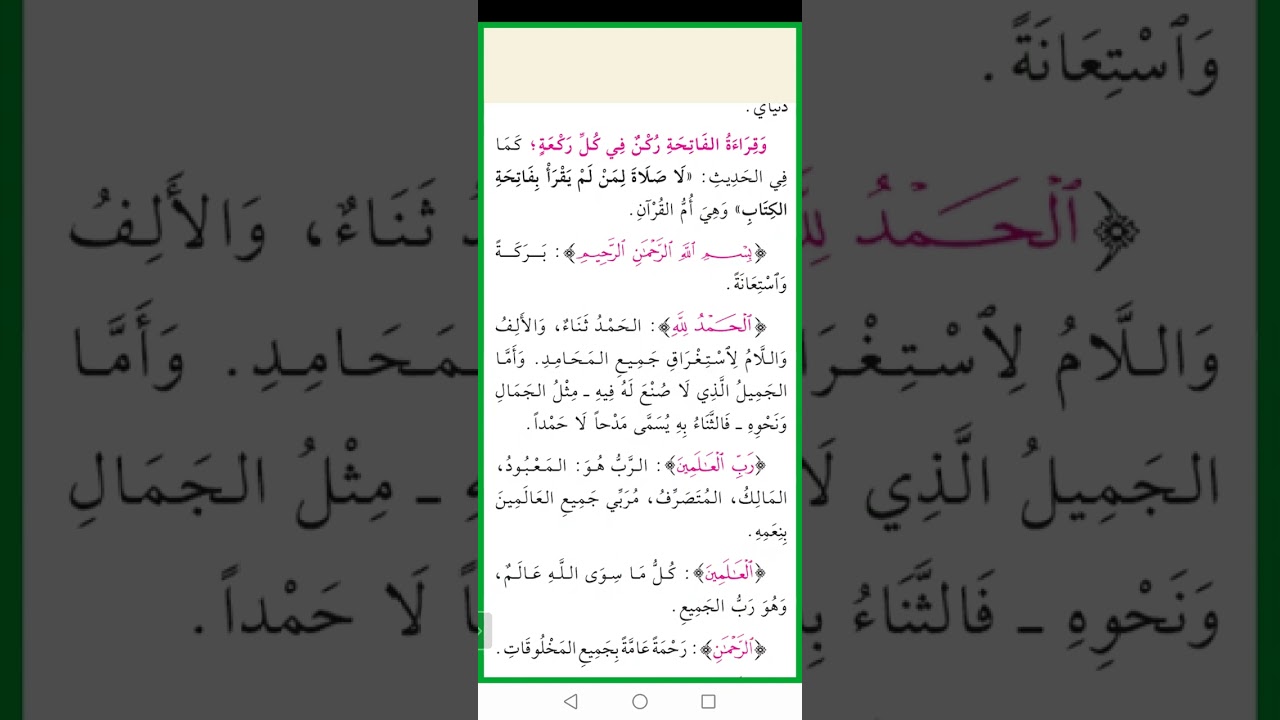 دنياي .
وَقِرَاءَةُ الفَاتِحَةِ رُكْنٌ فِي كُلِّ رَكْعَةٍ؛ كَمَا
فِي الحَدِيثِ: «لَا صَلَاةَ لِمَنْ لَمْ يَقْرَأْ بِفَاتِحَةِ
الكِتَابِ» وَهِيَ أُمُّ القُرْآنِ.
﴿بِسْمِ ٱللَّهِ ٱلرَّحْمَٰنِ ٱلرَّحِيمِ﴾: بَـرَكَـةً
وَٱسْتِعَانَةً.
﴿ٱلْحَمْدُ لِلَّهِ﴾: الحَمْدُ ثَنَاءٌ، وَالأَلِفُ
وَاللَّامُ لِٱسْتِغْرَاقِ جَمِيعِ المَحَامِدِ. وَأَمَّا
الجَمِيلُ الَّذِي لَا صُنْعَ لَهُ فِيهِ ـ مِثْلُ الجَمَالِ
وَنَحْوِهِ ـ فَالثَّنَاءُ بِهِ يُسَمَّى مَدْحاً لَا حَمْداً.
﴿رَبِّ ٱلْعَٰلَمِينَ﴾: الرَّبُّ هُوَ: المَعْبُودُ،
المَالِكُ، المُتَصَرِّفُ، مُرَبِّي جَمِيعِ العَالَمِينَ
بِنِعَمِهِ.
﴿ٱلْعَٰلَمِينَ﴾: كُلُّ مَا سِوَى اللَّهِ عَالَمٌ،
وَهُوَ رَبُّ الجَمِيعِ.
﴿ٱلرَّحْمَٰنِ﴾: رَحْمَةً عَامَّةً بِجَمِيعِ المَخْلُوقَاتِ.
وَٱسْتِعَانَةً.
﴿ٱلْحَمْدُ
ثَنَاءٌ، وَالأَلِفُ
وَاللَّامُ
وَأَمَّا
الجَمِيلُ الَّذِي
مِثْلُ الجَمَالِ
وَنَحْوِهِ ـ فَالثَّنَاءُ
لَا حَمْداً.